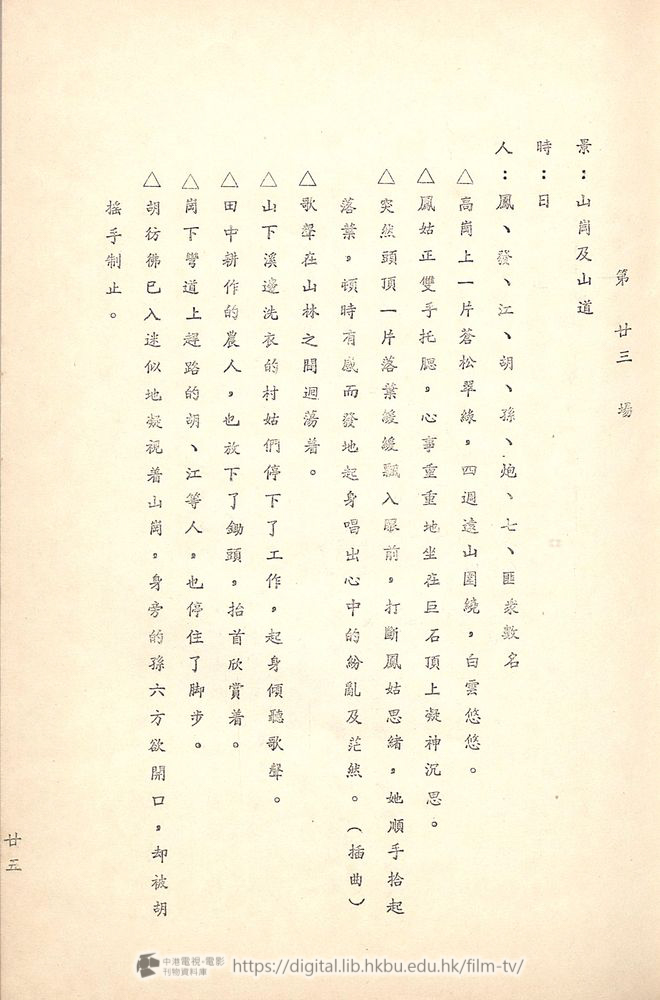 第廿三場
景：山崗及山道
時：日
人：鳳、發、江、胡、孫、炮、七、匪衆數名
△高崗上一片蒼松翠綠，四週遠山圍繞，白雲悠悠。
△鳳姑正雙手托腮，心事重重地坐在巨石頂上凝神沉思。
△突然頭頂一片落葉緩緩飄入眼前，打斷鳳姑思緒，她順手拾起
落葉，頓時有感而發地起身唱出心中的紛亂及茫然。（插曲）
△歌聲在山林之間迴蕩着。
△山下溪邊洗衣的村姑們停下了工作，起身傾聽歌聲。
△田中耕作的農人，也放下了鋤頭，抬首欣賞着。
△崗下彎道上趕路的胡、江等人，也停住了脚步。
△胡彷彿已入迷似地凝視着山崗，身旁的孫六方欲開口，却被胡
搖手制止。
廿五
中港電視·電影
刊物資料庫
https://digital.lib.hkbu.edu.hk/film-tv/